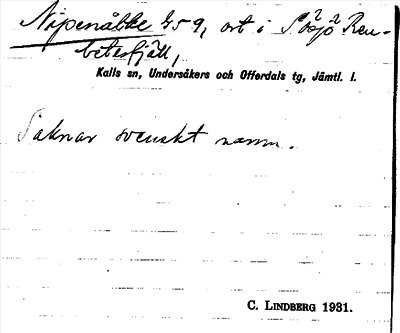 Nipenåbbe 459, ort i Sösjö Ren-
betesfjäll,
Kalls sn, Undersåkers och Offerdals tg, Jämtl. l.
Saknar svenskt namn.
C. LINDBERG 1931.